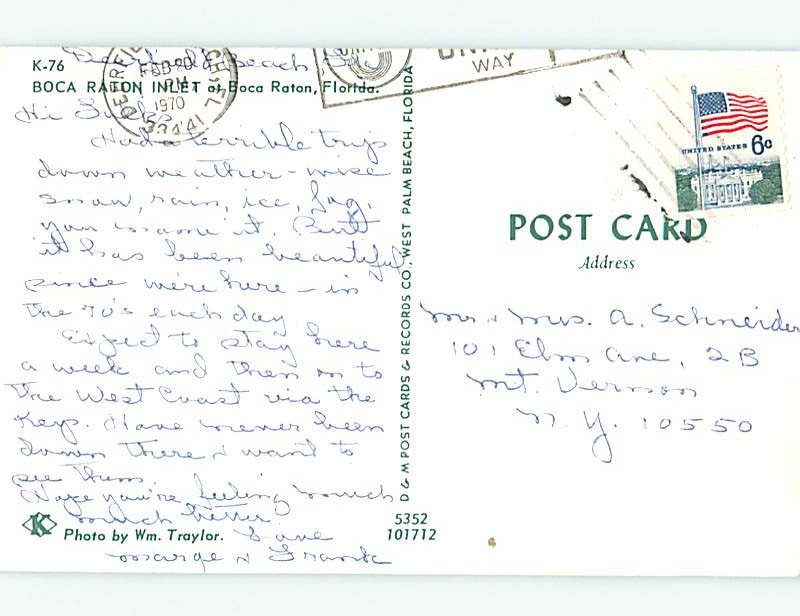 K-76
Deerfield Beach, Fla
BOCA RATON INLET at Boca Raton, Florida.
DEERFIELD BEACH, FL
FEB 20
PM
1970
33441
UNITED
WAY
Hi
Had a terrible trip
down weather-wise
snow, rain, ice, fog,
you name it. But
it has been beautiful
since we're here - in
the 70's each day
Expect to stay here
a week and then on to
the West Coast via the
Keys. Have never been
down there & want to
see them.
Hope you're feeling much
much better.
Love
Marge & Frank
K
Photo by Wm. Traylor.
5352
101712
D & M POST CARDS & RECORDS CO., WEST PALM BEACH, FLORIDA
UNITED STATES 6c
POST CARD
Address
Mr & Mrs. A. Schneider
101 Elm Ave, 2B
Mt. Vernon
N.Y. 10550